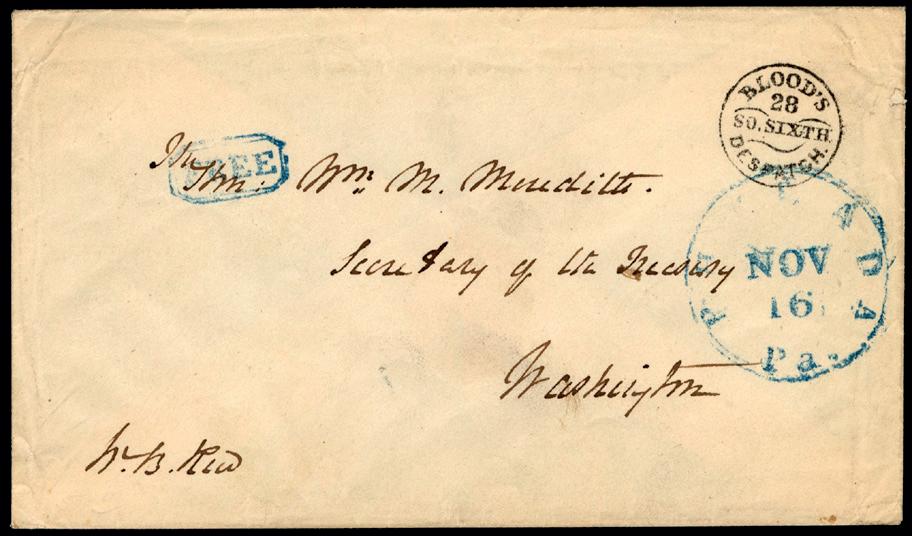 BLOOD'S
28
SO. SIXTH
DESPATCH.
FREE
The
Hon: Wm: M. Meredith.
Secretary of the Treasury
Washington
NOV
16
Pa.
W. B. Reed